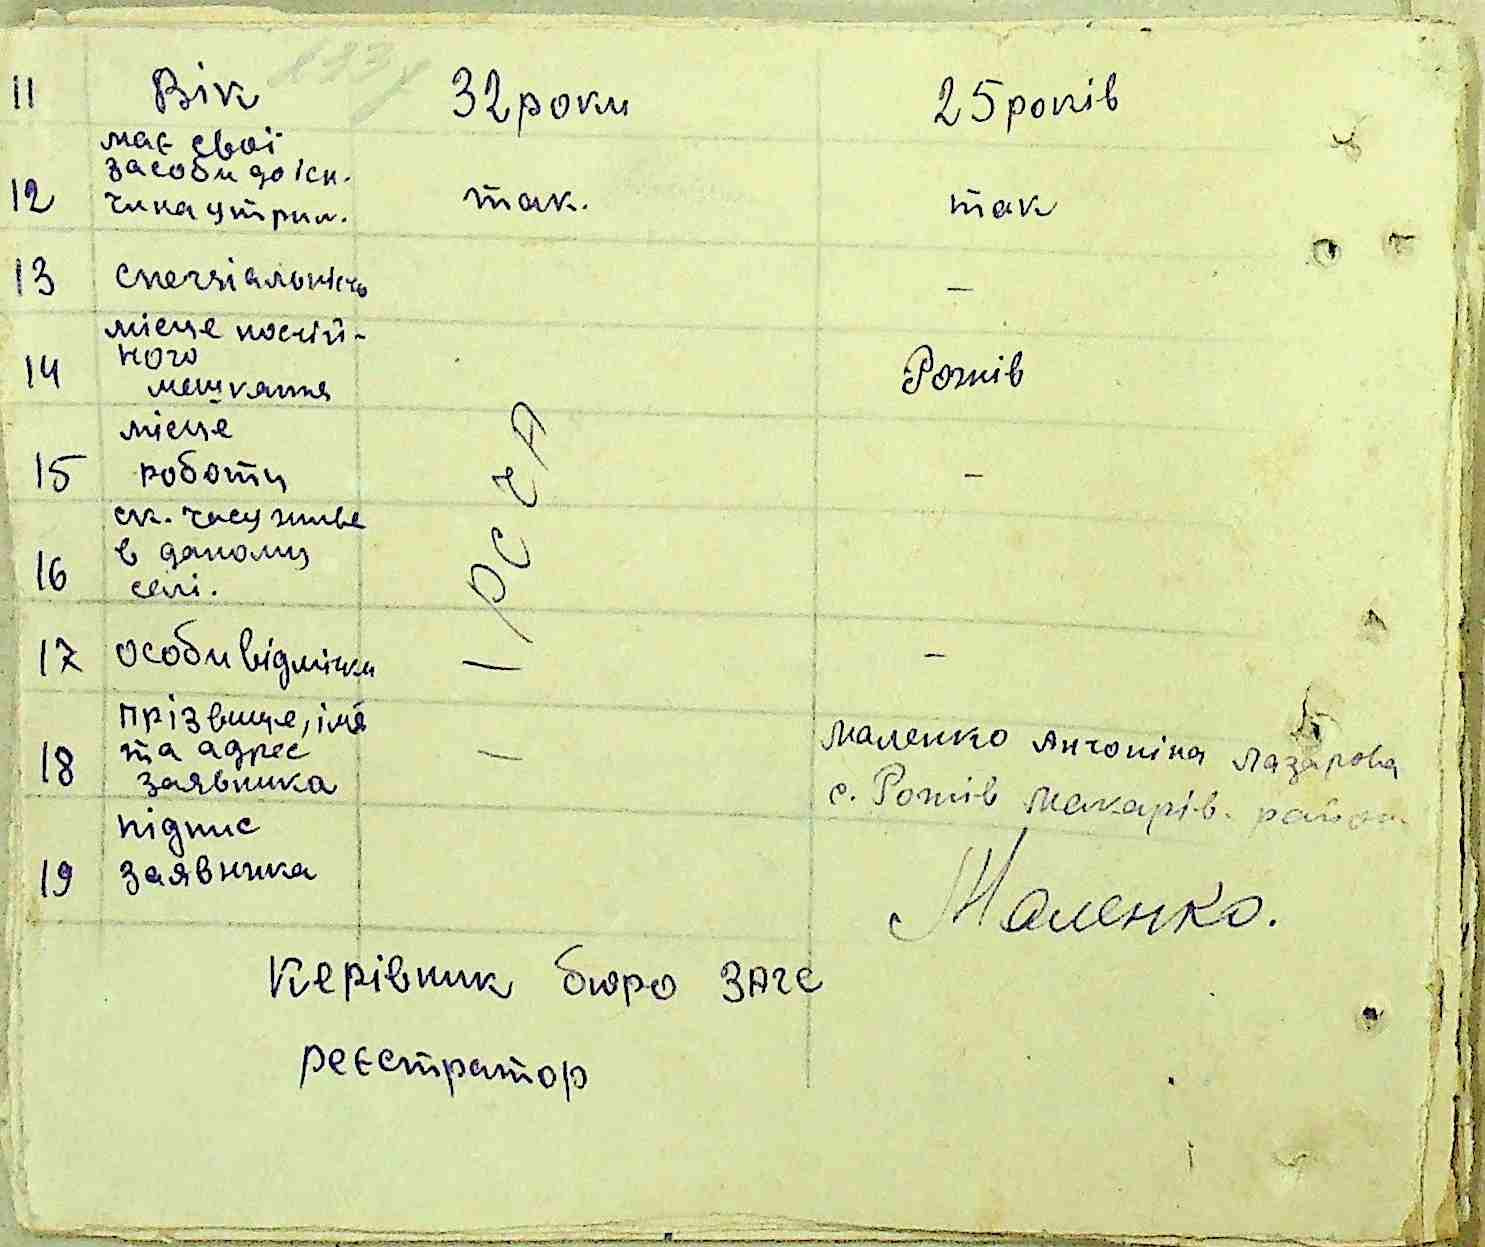 11 Вік 32 роки 25 років
має свої
засоби до існ.
12 чи на утрим. так. так
13 спеціальність –
місце постій-
ного
14 мешкання Рожів
місце
15 роботи –
ск. часу живе
в даному
16 селі.
РСЧА
17 особи відмічки – –
прізвище, імя
18 та адрес – Маленко Антоніна Лазарова
заявника с. Рожів Макарів. район
підпис
19 заявника Маленко.
Керівник бюро ЗАГС
реєстратор